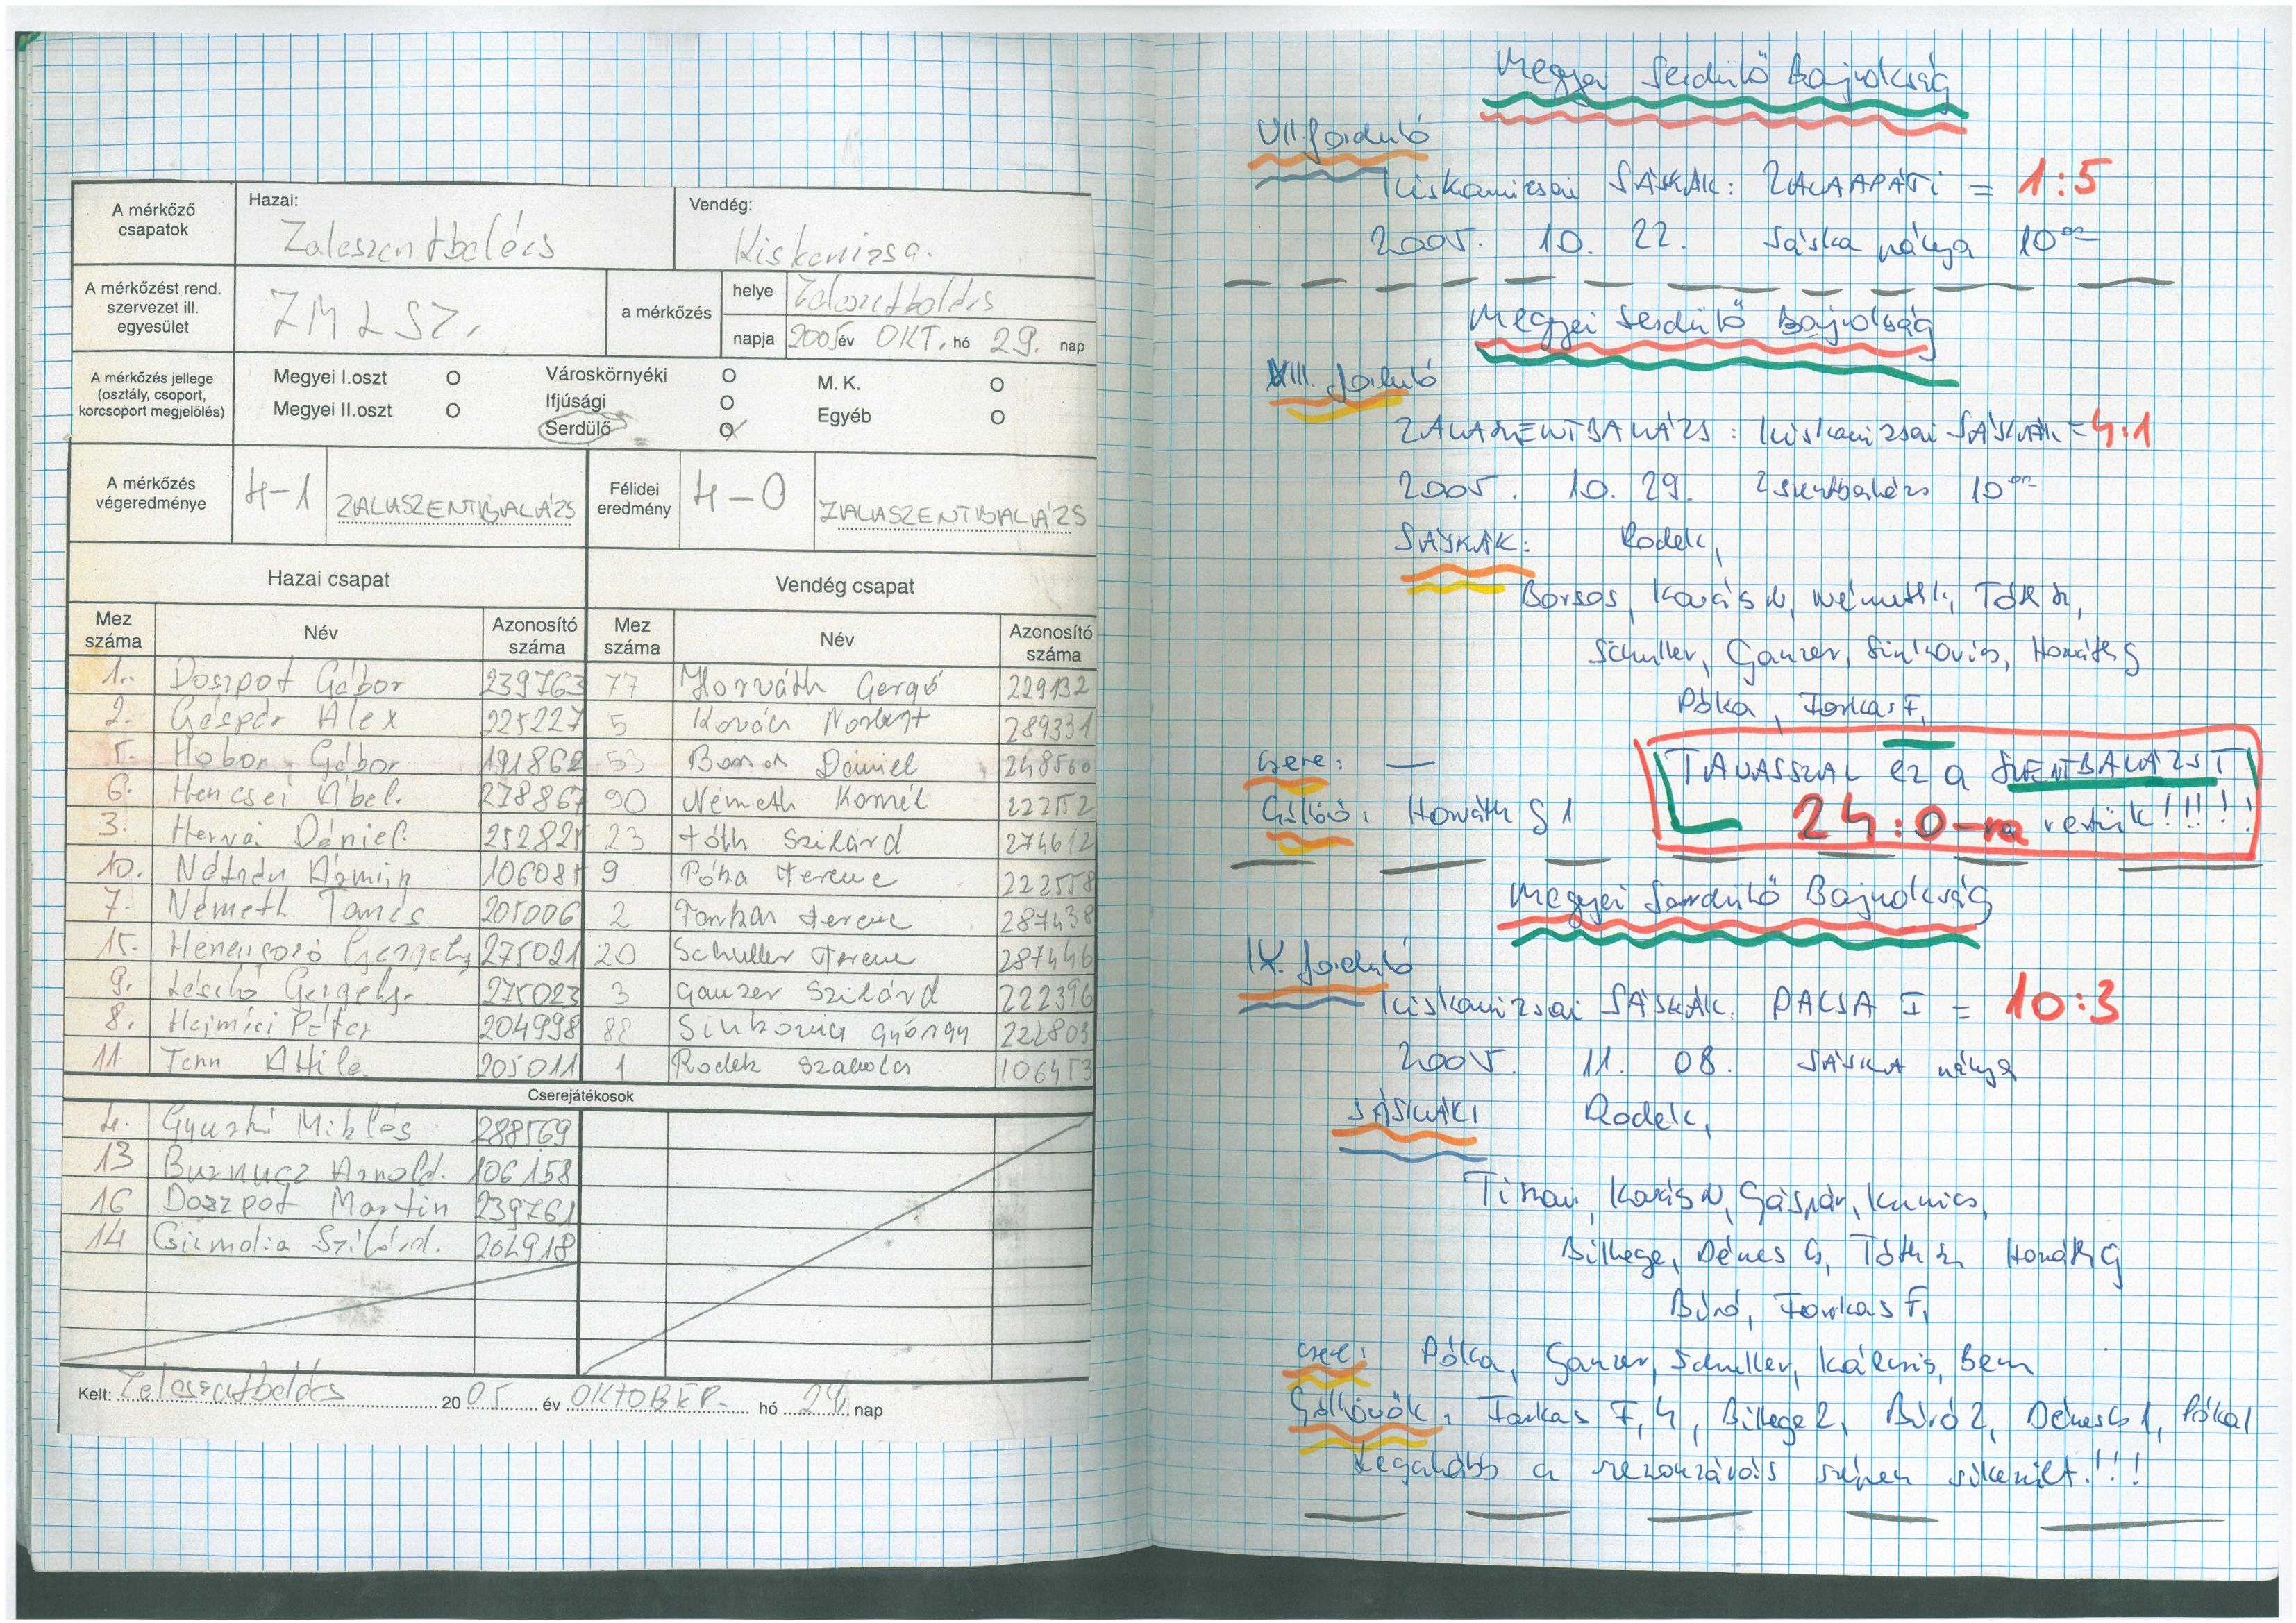 A mérkőző csapatok
Hazai: Zalaszentbalázs
Vendég: Kiskanizsa.
A mérkőzést rend. szervezet ill. egyesület
ZMLSZ.
a mérkőzés
helye Zalaszetbalázs
napja 2005 év OKT. hó 29. nap
A mérkőzés jellege (osztály, csoport, korcsoport megjelölés)
Megyei I.oszt O Városkörnyéki O M. K. O
Megyei II.oszt O Ifjúsági O Egyéb O
Serdülő O
A mérkőzés végeredménye 4-1 ZALASZENTBALÁZS
Félidei eredmény 4-0 ZALASZENTBALÁZS
Hazai csapat Vendég csapat
Mez száma Név Azonosító száma Mez száma Név Azonosító száma
1. Doszpot Gábor 239763 77 Horváth Gergő 229132
2. Gáspár Alex 225227 5 Kovács Norbert 289331
5. Hobor Gábor 191862 53 Borsos Dániel 248560
6. Hencsei Ábel. 278867 90 Németh Kornél 222152
3. Hervai Dániel. 252825 23 Tóth Szilárd 274612
10. Nátrán Ármin 106085 9 Póka Ferenc 222558
7. Németh Tamás 205006 2 Farkas Ferenc 287438
15. Gergely 275021 20 Schuller Ferenc 287446
9. László Gergely 275023 3 Ganzer Szilárd 222396
8. Hajmási Péter 204998 88 Sinkovics György 222803
11. Tenn Attila 205011 1 Rodek Szabolcs 106453
Cserejátékosok
4. Gyuszi Miklós 288569
13 Burnucz Arnold. 106158
16 Doszpot Martin 239761
14 Szilárd. 204918
Kelt: Zalaszentbalázs 2005 év OKTOBER. hó 29. nap
Megyei Serdülő Bajnokság
VII. forduló
Kiskanizsai SÁSKÁK: ZALAAPÁTI = 1:5
2005. 10. 22. Sáska pálya 10⁰⁰
Megyei Serdülő Bajnokság
VIII. forduló
ZALASZENTBALÁZS: Kiskanizsai SÁSKÁK = 4:1
2005. 10. 29. Zszentbalázs 10⁰⁰
SÁSKÁK: Rodek,
Borsos, Kovács N, Németh K, Tóth Sz,
Schuller, Ganzer, Sinkovics, Horváth G
Póka, Farkas F,
csere: —
Góllövő: Horváth G 1
TAVASSZAL ez a SZENTBALÁZST
24:0-ra verjük!!!!!
Megyei Serdülő Bajnokság
IX. forduló
Kiskanizsai SÁSKÁK: PACSA I = 10:3
2005. 11. 08. SÁSKA pálya
SÁSKÁK: Rodek,
Tiszai, Kovács N, Gáspár, Kunics,
Billege, Dénes G, Tóth Sz, Horváth G
Bíró, Farkas F,
csere: Póka, Ganzer, Schuller, Kálcsics, Bem
Góllövők: Farkas F, 4, Billege 2, Bíró 2, Dénes G 1, Póka 1
Legalább a szezonzárás szépen sikerült!!!